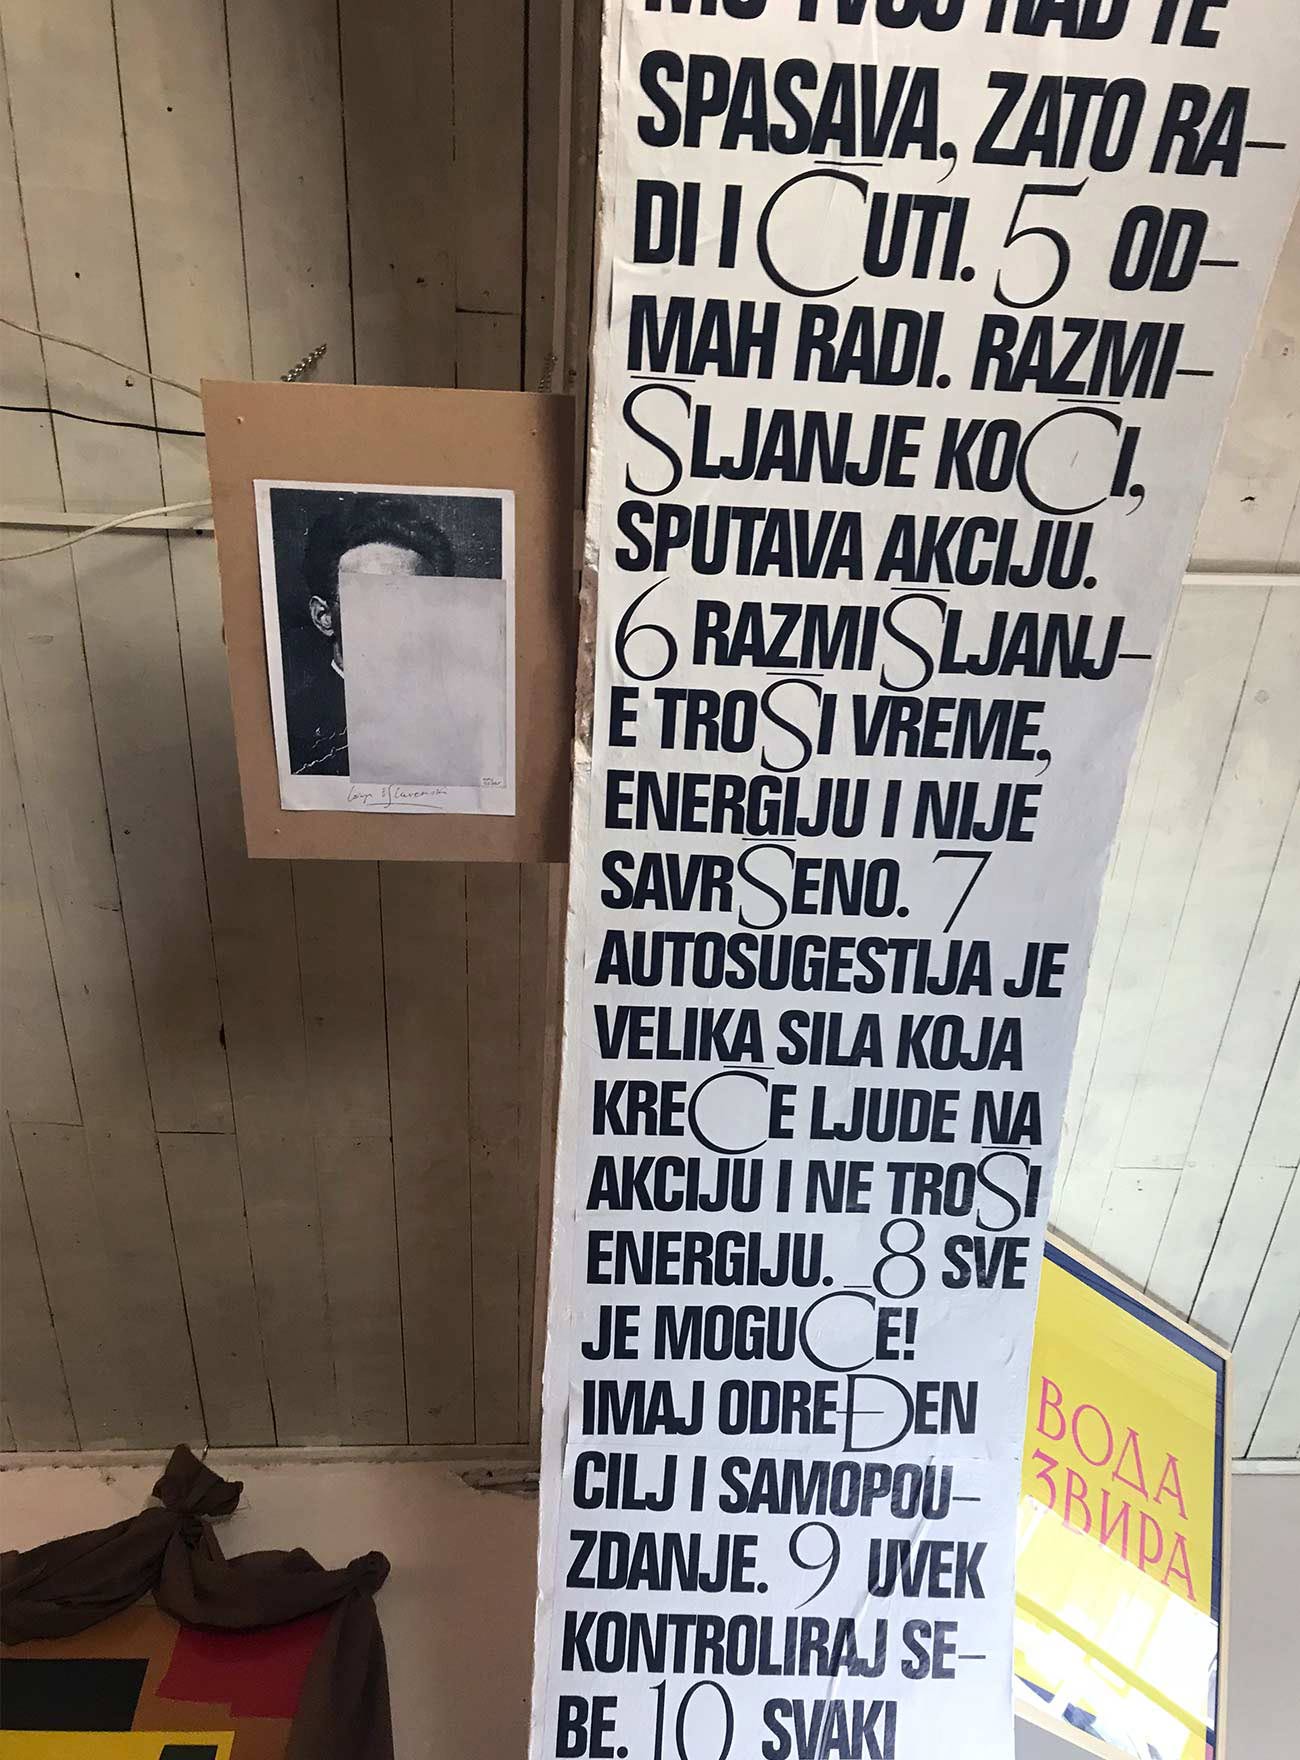 MO TVOJ RAD TE
SPASAVA, ZATO RA–
DI I C̄UTI. 5 OD–
MAH RADI. RAZMI–
S̄LJANJE KOC̄I,
SPUTAVA AKCIJU.
6 RAZMIS̄LJANJ–
E TROS̄I VREME,
ENERGIJU I NIJE
SAVRS̄ENO. 7
AUTOSUGESTIJA JE
VELIKA SILA KOJA
KREC̄E LJUDE NA
AKCIJU I NE TROS̄I
ENERGIJU. 8 SVE
JE MOGUC̄E!
IMAJ ODREĐEN
CILJ I SAMOPOU–
ZDANJE. 9 UVEK
KONTROLIRAJ SE–
BE. 10 SVAKI
ВОДА
ЗВИРА